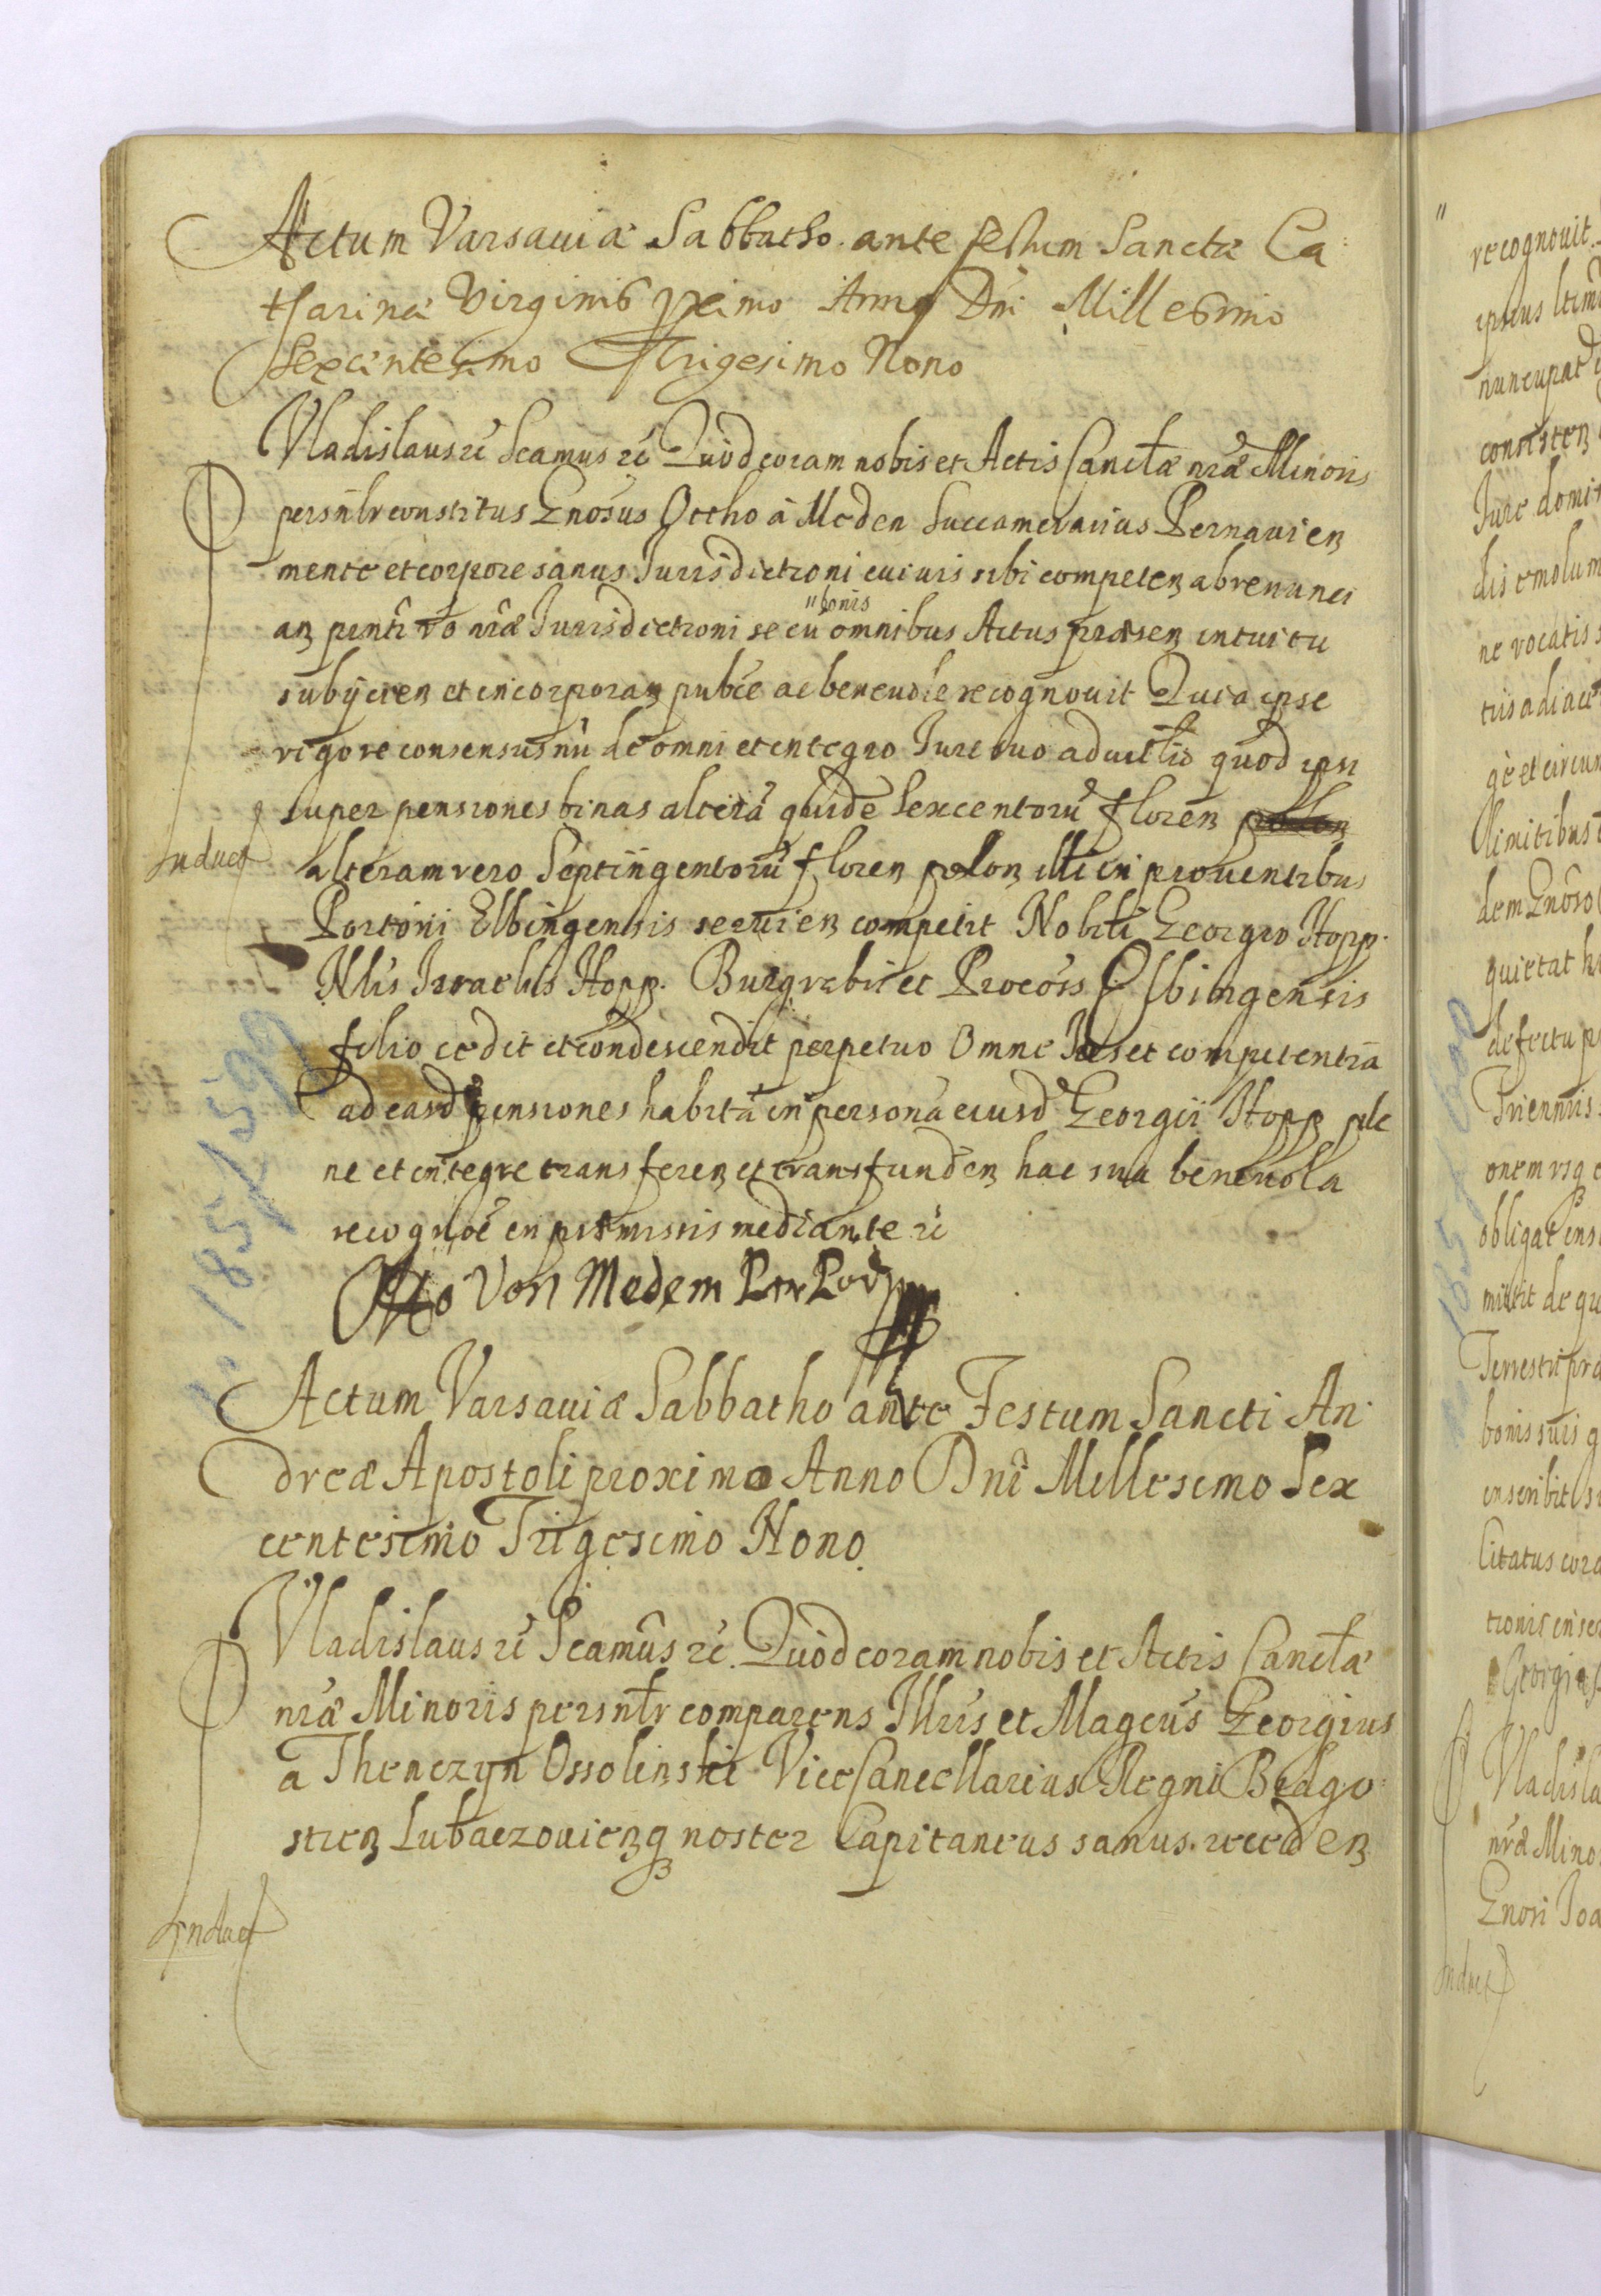 Actum Varsauiæ Sabbatho ante festum Sanctæ Ca
tharinæ Virginis proximo Anno Dni Millesimo
Sexcentesimo Trigesimo Nono
Vladislaus rc Scamus rc Quod coram nobis et Actis Cancłæ nræ Minoris
persnlr constitus Gnosus Ottho à Meden Succamerarius Pernauien
mente et corpore sanus Jurisdictioni cuiuis sibi competen abrenunci
an pñti vo nræ Jurisdictioni se cu "bonis omnibus Actus præsen intuitu
subijcien et incorporan pubce ac beneuole recognouit Quia ipse
rigore consensus nri de omni et integro Jure suo aduitłio quod ipsi
super pensiones binas alterã quide Sexcentorũ floren polon
Induct
alteram vero Septingentorũ floren polon illi in prouentibus
Portorii Elbingensis seruien competit Nobili Georgio Hopp.
Nlis Israelis Hopp. Burgrabii et Procõss Elbingensis
filio cedit et condescendit perpetuo Omne Jus et competentiã
ad easd pensiones habitã in personã eiusd Georgii Hopp ple
ne et integre transferen et transfunden hac sua beneuola
recognoe in præmissis mediante rc
Otto Von Medem
Actum Varsauiæ Sabbatho ante Festum Sancti An
dreæ Apostoli proximo Anno Dni Millesimo Sex
centesimo Trigesimo Nono
Vladislaus rc Scamus rc. Quod coram nobis et Actis Cancłæ
nræ Minoris persnłr comparens Illris et Magcus Georgius
a Thenczyn Ossolinski ViceCancellarius Regni Bidgo
stien Lubaczouienq noster Capitaneus sanus. receden
Induct
recognouit
ipsius
nuncupat
consisten
Jure domi
dis emolum
ne vocatis
tiis adiace
gè et circum
limitibus
dem Gnoso
quietat
defectu p
Triennis
onem usq
obligat
mittit de qu
Terrestri
bonis suis q
inscribit
Citatus cora
tionis inse
Georgi
Vladisla
nræ Mino
Gnosi Joa
Induct